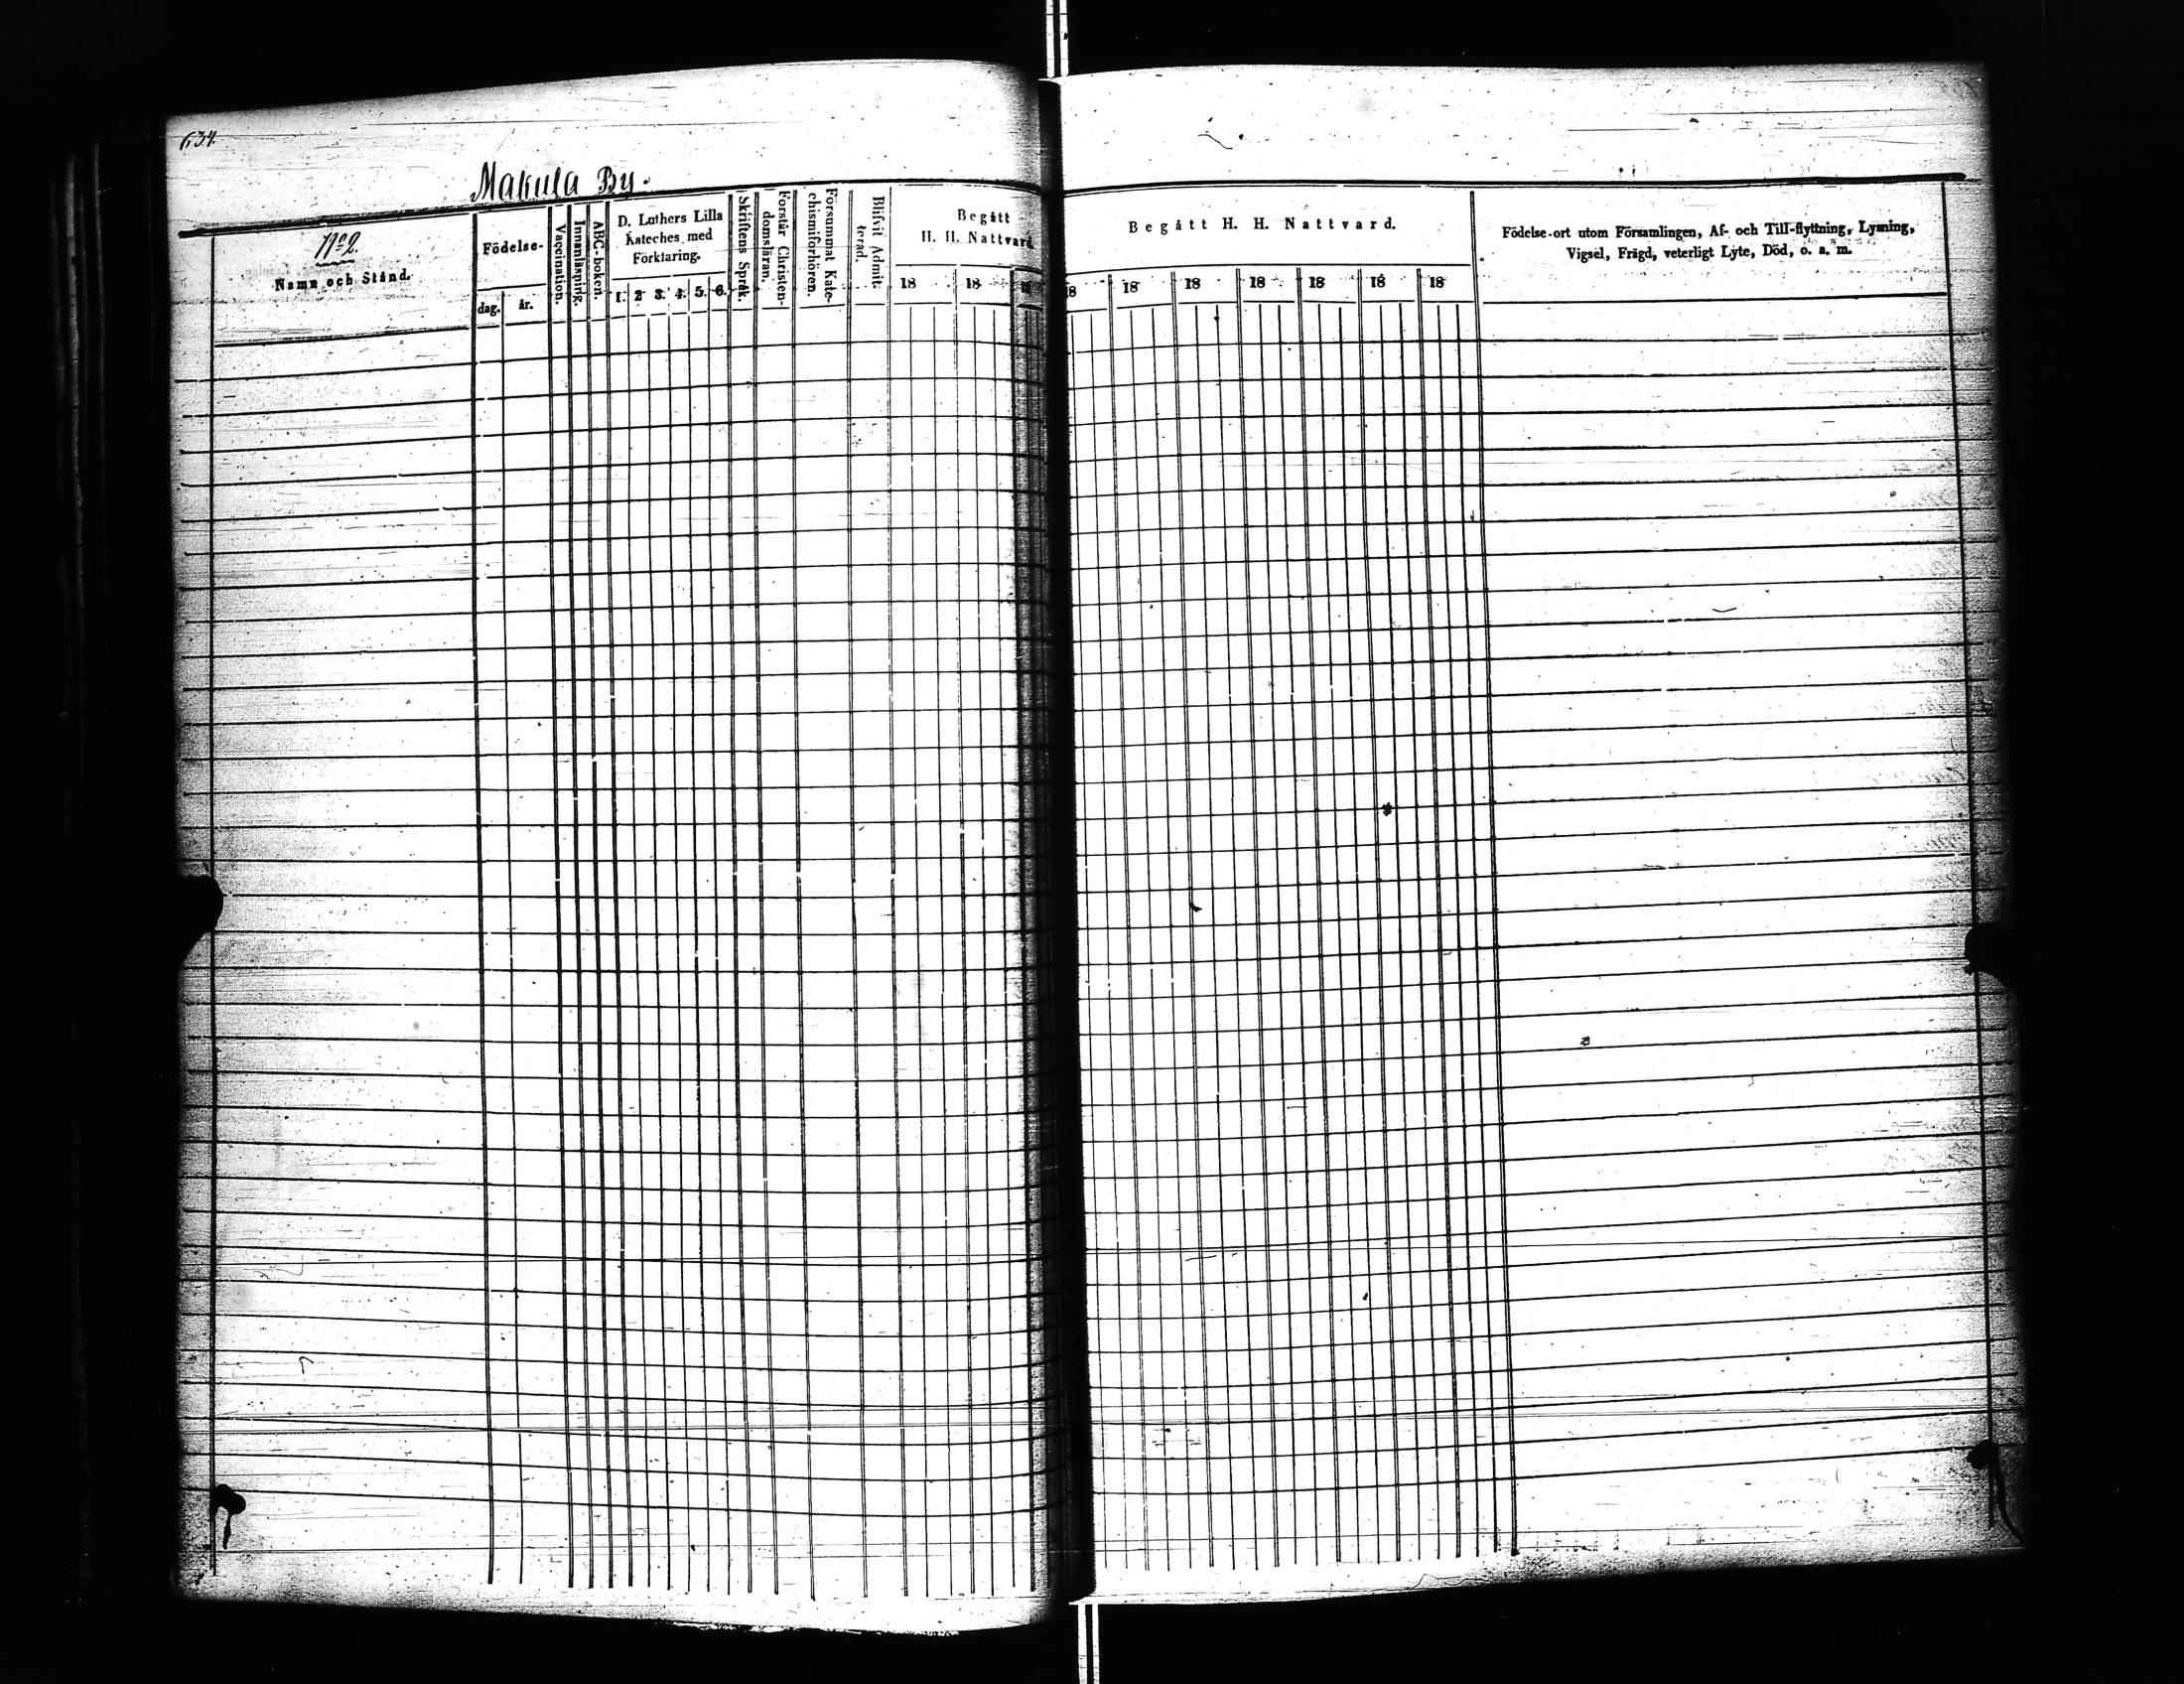 634.
Makula By.
N:o 2.
Namn och Stånd.
Födelse-
dag.
år.
Vaccination.
Innanläsning.
ABC-boken.
D. Luthers Lilla
Kateches med
Förklaring.
1. 2. 3. 4. 5. 6.
Skriftens Språk.
Förstår Christen-
domsläran.
Försummat Kate-
chismiförhören.
Blifvit Admit-
terad.
Begått
H. H. Nattvard.
18 18 18
Begått H. H. Nattvard.
18 18 18 18 18 18 18
Födelse-ort utom Församlingen, Af- och Till-flyttning, Lysning,
Vigsel, Frägd, veterligt Lyte, Död, o. a. m.